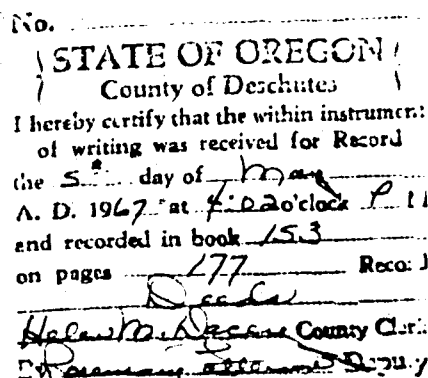 No.
STATE OF OREGON
County of Deschutes
I hereby certify that the within instrument
of writing was received for Record
the 5 day of May
A. D. 1967 at 4:02 o'clock P M
and recorded in book 153
on pages 177 Record
Deeds
Helen M. County Clerk
By Rosemary Deputy